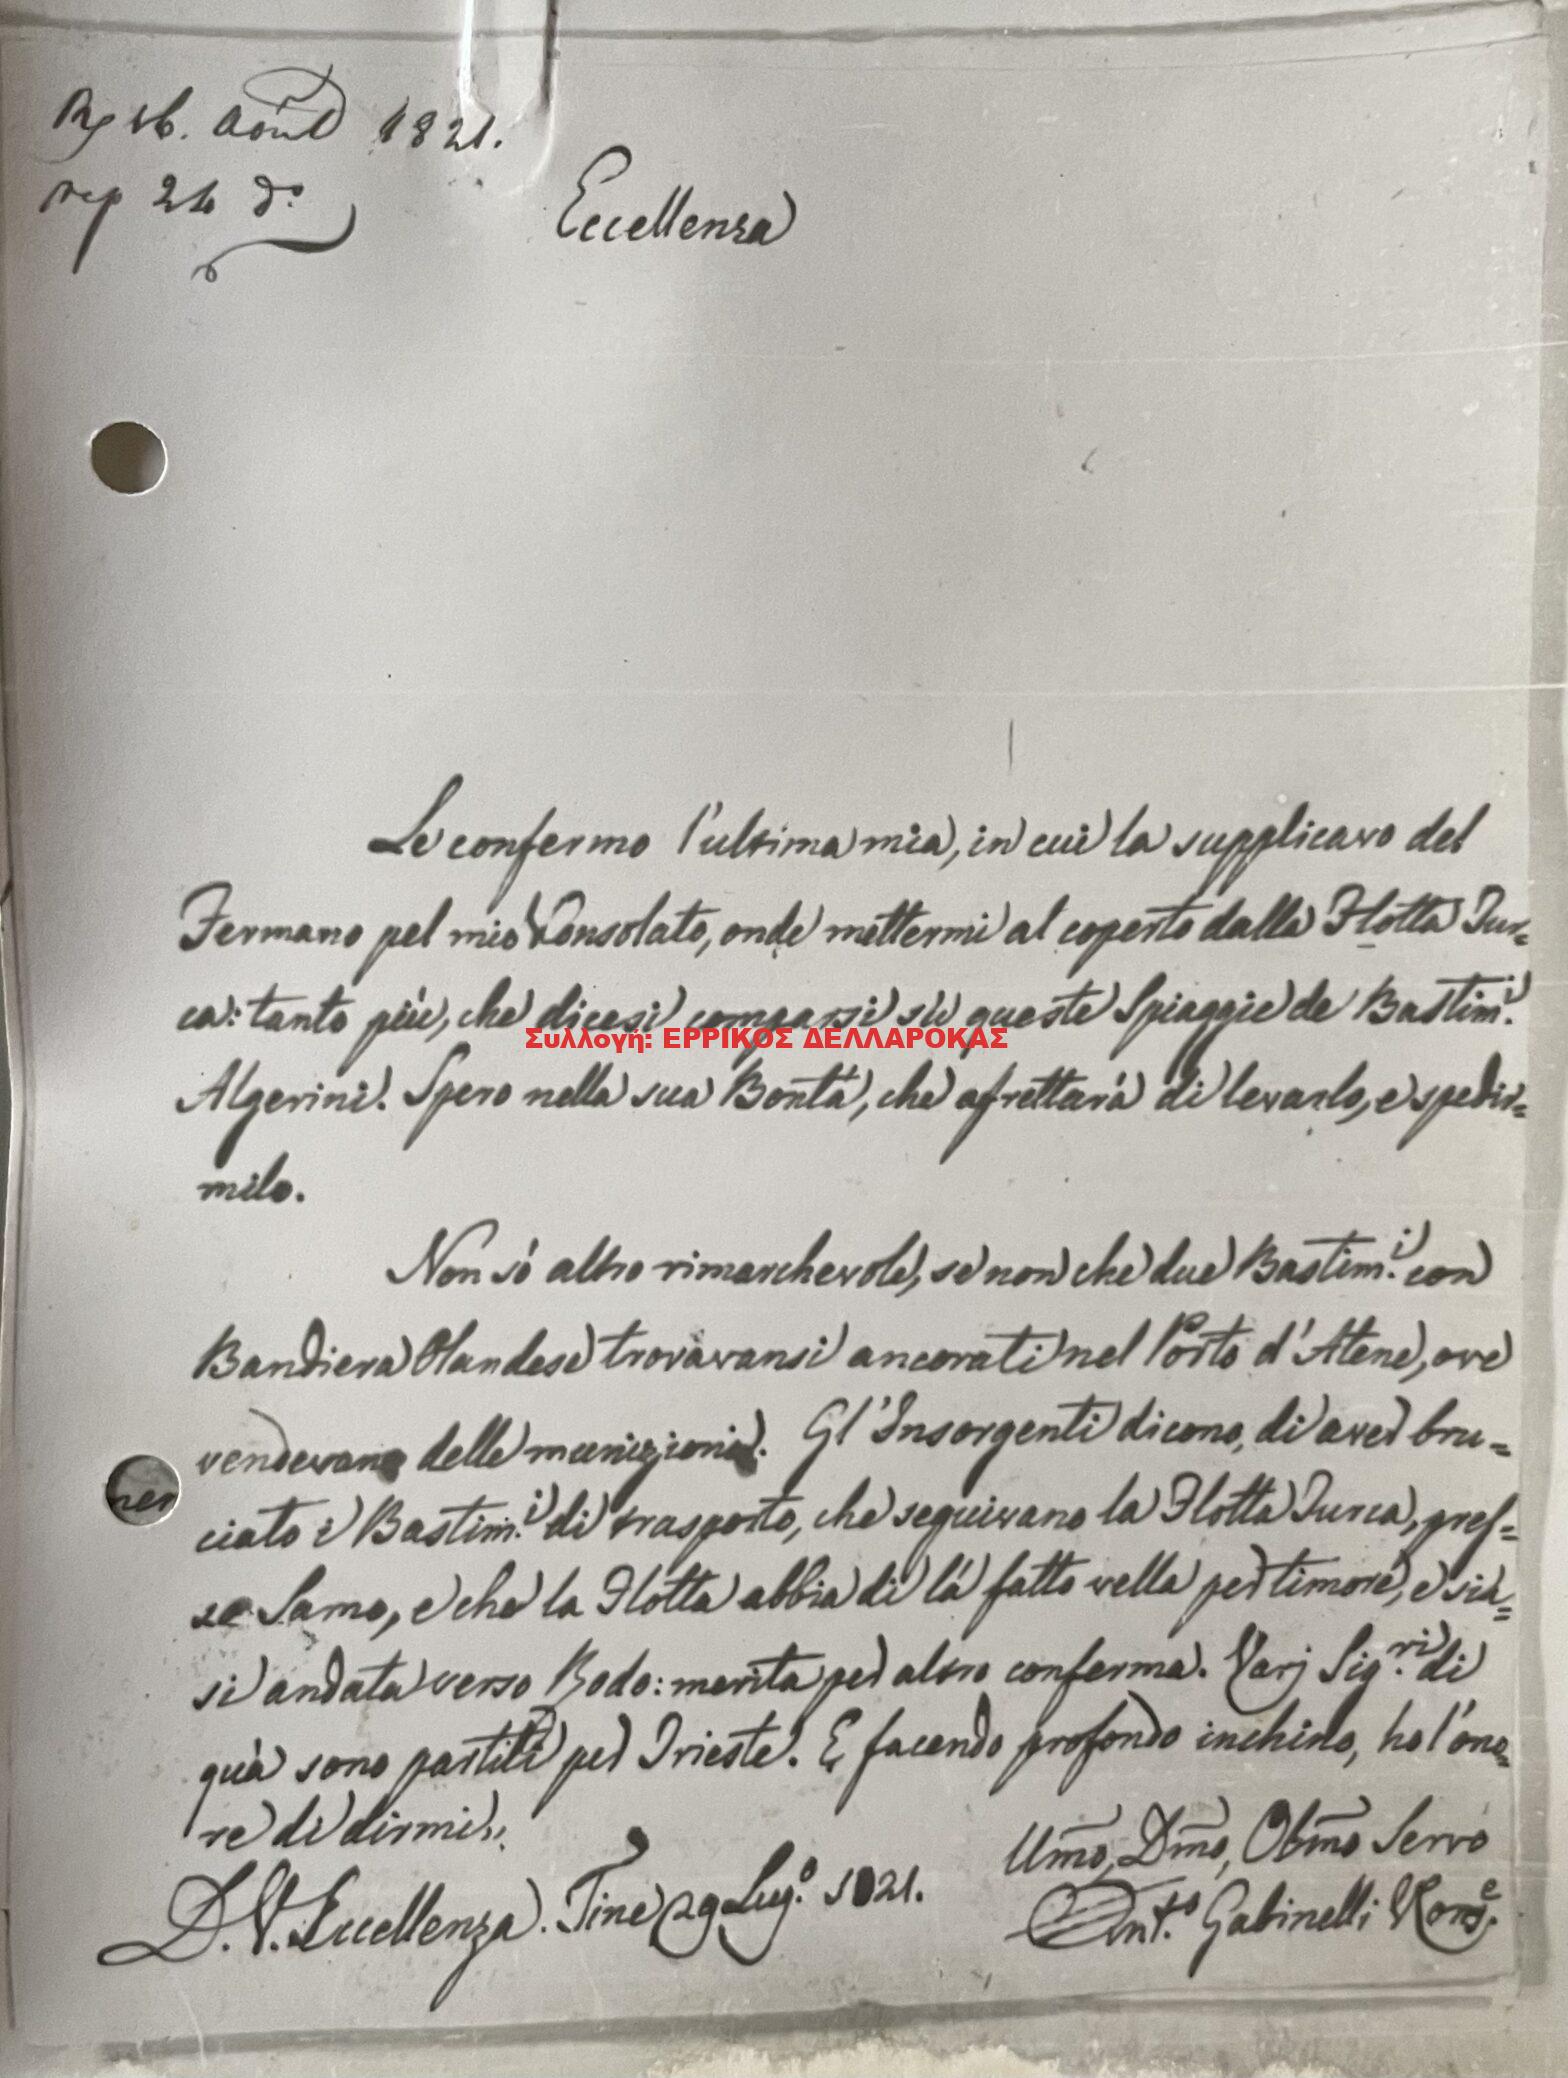 Rç 16. Août 1821.
rep 24 d.º
Eccellenza
Le confermo l'ultima mia, in cui la supplicavo del
Fermano pel mio Consolato, onde mettermi al coperto dalla Flotta Tur=
ca: tanto più, che dicesi comparsi sù queste Spiaggie de Bastim.i
Συλλογή: ΕΡΡΙΚΟΣ ΔΕΛΛΑΡΟΚΑΣ
Algerini. Spero nella sua Bontà, che afrettarà di levarlo, e spedir=
milo.
Non sò altro rimarchevole, se non che due Bastim.i con
Bandiera Olandese trovavansi ancorati nel Porto d'Atene, ove
vendevano delle munizioni. Gl'Insorgenti dicono, di aver bru=
ciato i Bastim.i di trasporto, che seguivano la Flotta Turca, pres=
so Samo, e che la Flotta abbia di là fatto vella per timore, e sia=
si andata verso Rodo: merita per altro conferma. Varj Sig.ri di
quà sono partiti per Trieste. E facendo profondo inchino, ho l'ono=
re di dirmi,,
D. V. Eccellenza. Tine 29 Lug.º 1821.
Umo, Dmo, Obmo Servo
Ant.º Gabinelli Kons.e